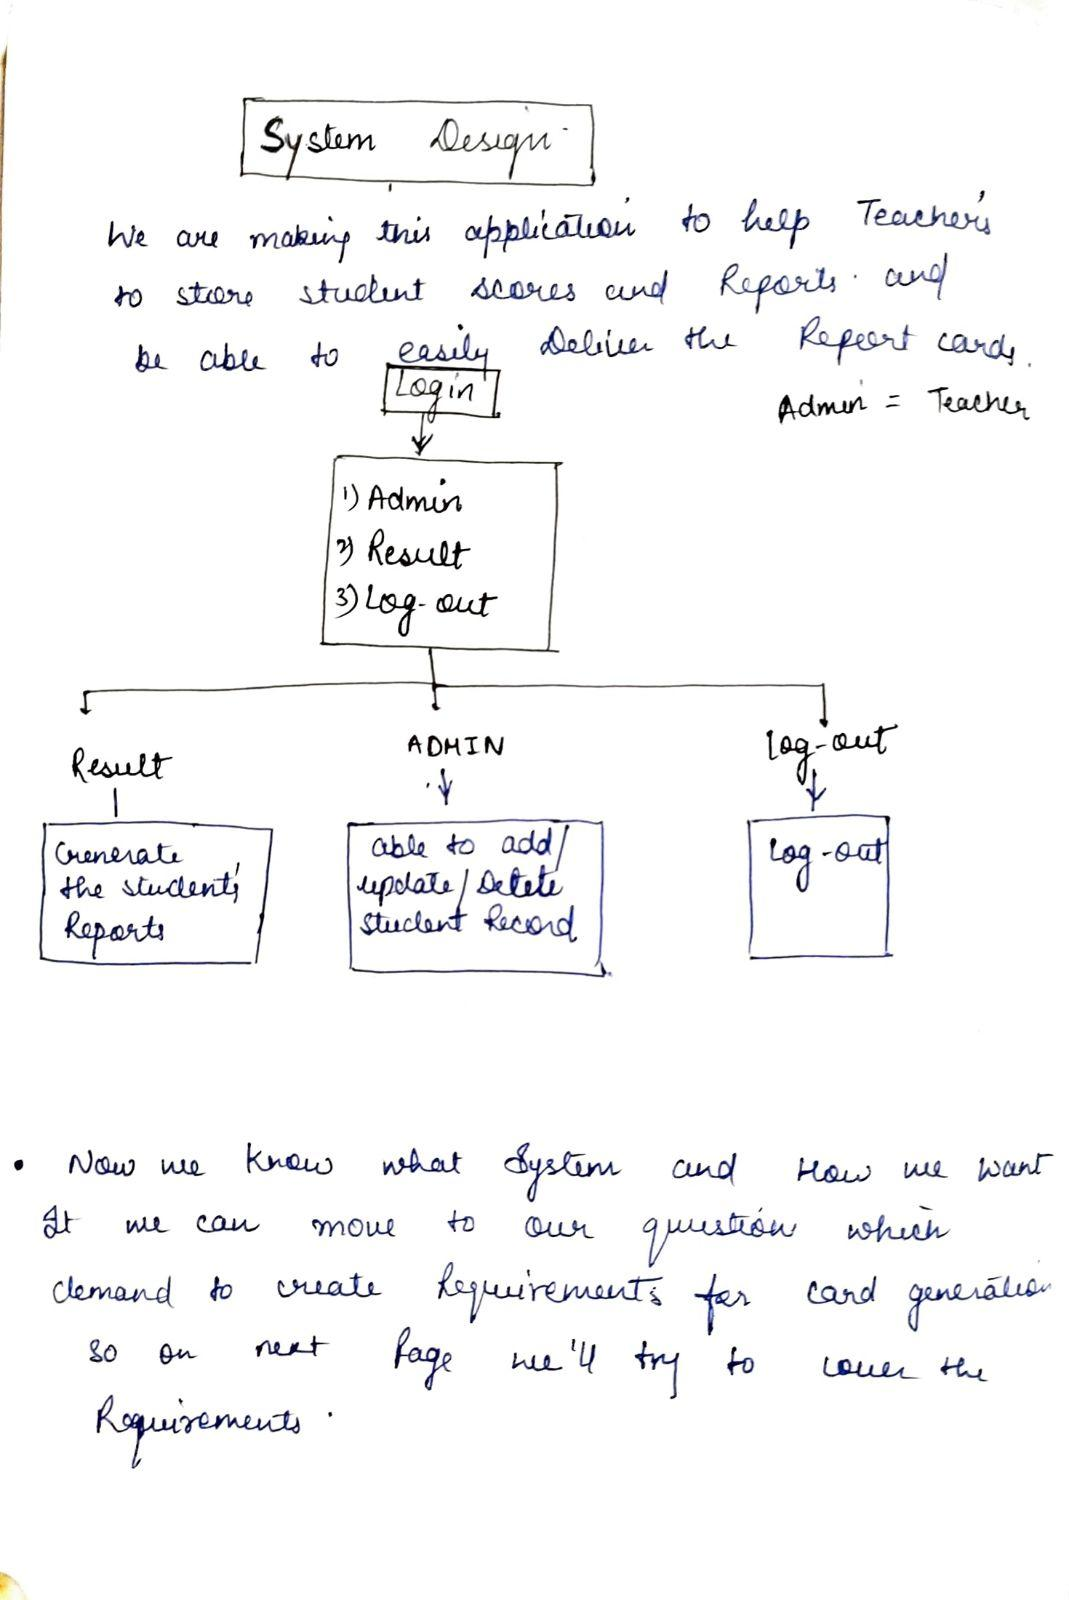 System Design
We are making this application to help Teacher's
to store student scores and Reports and
be able to easily Deliver the Report cards.
Login
Admin = Teacher
1) Admin
2) Result
3) Log-out
Result
ADMIN
Log-out
Generate
the student's
Reports
able to add/
update/Delete
student Record
Log-out
• Now we know what System and How we want
It we can move to our question which
demand to create Requirements for card generation
so on next Page we'll try to cover the
Requirements.